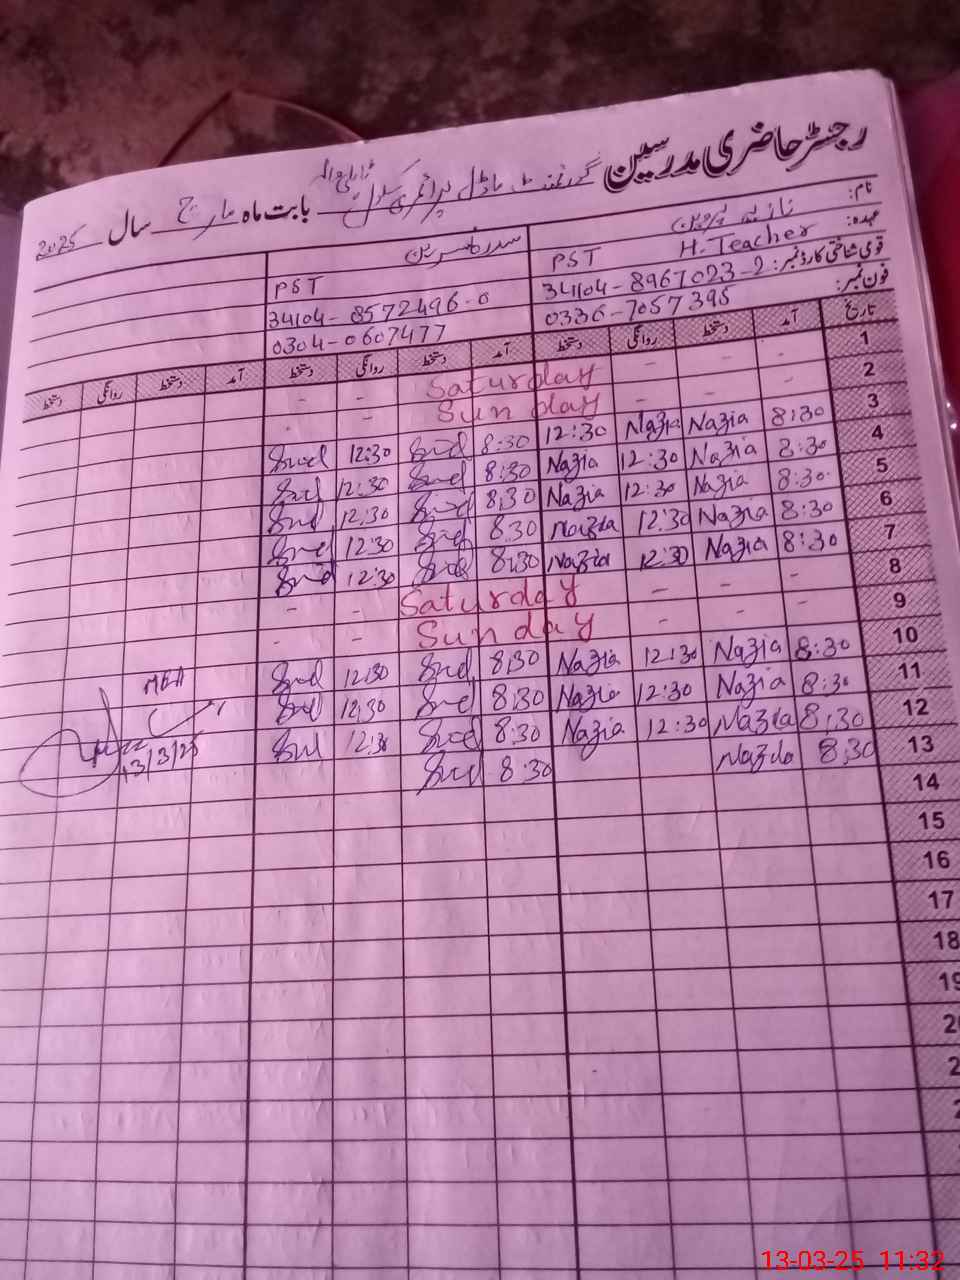 رجسٹر حاضری مدرسین گورنمنٹ ماڈل پرائمری سکول بابت ماہ مارچ سال 2025
نام: نازیہ پروین سدرہ نسرین
عہدہ: H.Teacher PST PST
قومی شناختی کارڈ نمبر: 34104-8967023-2 34104-8572496-0
فون نمبر: 0336-7057395 0304-0607477
تاریخ آمد دستخط روانگی دستخط آمد دستخط روانگی دستخط آمد دستخط روانگی دستخط
1 - - Saturday - -
2 - - Sunday - -
3 8:30 Nazia Nazia 12:30 8:30 12:30
4 8:30 Nazia 12:30 Nazia 8:30 12:30
5 8:30 Nazia 12:30 Nazia 8:30 12:30
6 8:30 Nazia 12:30 Nazia 8:30 12:30
7 8:30 Nazia 12:30 Nazia 8:30 12:30
8 - - Saturday - -
9 - - Sunday - -
10 8:30 Nazia 12:30 Nazia 8:30 12:30
11 8:30 Nazia 12:30 Nazia 8:30 12:30 MEA
12 8:30 Nazia 12:30 Nazia 8:30 12:30
13 8:30 Nazia 8:30 13/3/25
14
15
16
17
18
13-03-25 11:32